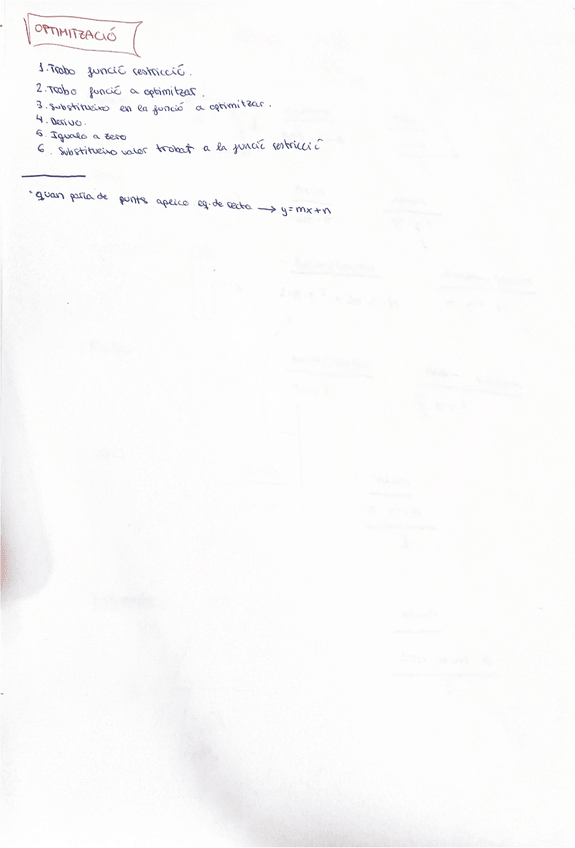 OPTIMITZACIÓ
1. Trobo funció restricció.
2. Trobo funció a optimitzar.
3. Substitueixo en la funció a optimitzar.
4. Derivo.
5 Igualo a zero
6. Substitueixo valor trobat a la funció restricció
· quan parla de punts aplico eq. de recta → y=mx+n